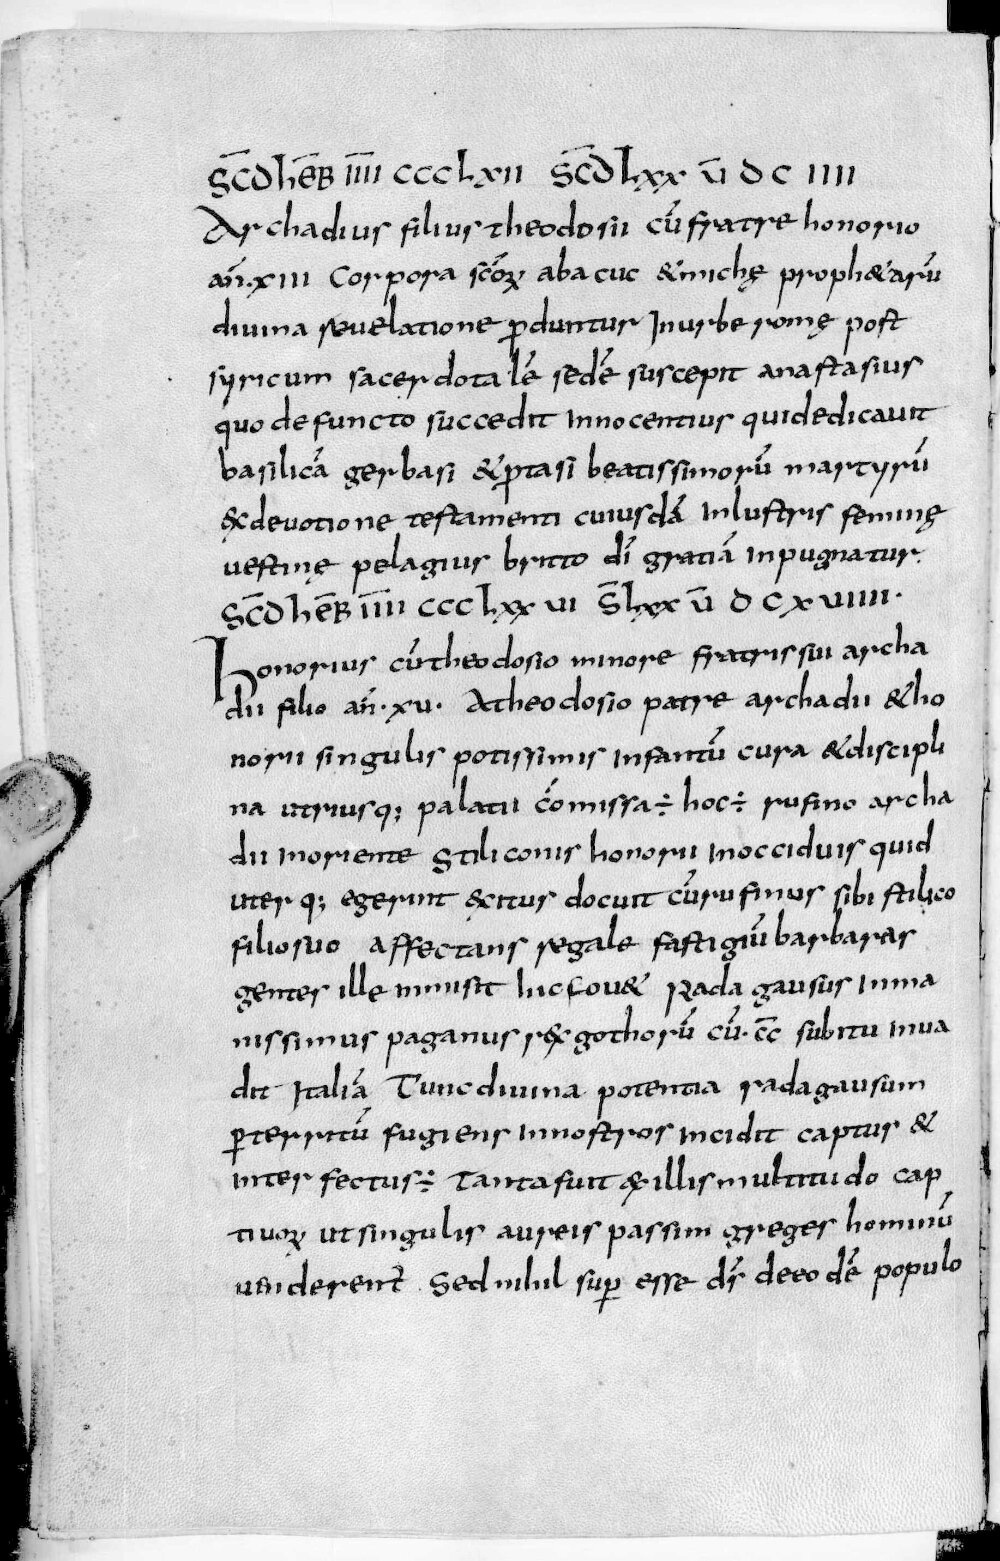 SC̄D HEB̄ I̅I̅I̅I̅ CCCLXII SC̄D LXX V̄ DC IIII
Archadius filius theodosii cū fratre honorio
an̄·XIII Corpora sc̄oꝝ abacuc & michę proph&arū
diuina reuelatione ꝑduntur Inurbe romę post
syricum sacerdotalē sedē suscepit anastasius
quo defuncto succedit Innocentius quidedicauit
basilicā gerbasi &ꝓtasi beatissimorū martyrū
&xdeuotione testamenti cuiusdā Inlustris feminę
uestinę pelagius britto dī gratiā Inpugnatur.
SC̄D HEB̄ I̅I̅I̅I̅ CCCLXXVI S̄ LXX V̄ DCXVIIII·
Honorius cū theodosio minore fratris sui archa
dii filio an̄·XV· Atheodosio patre archadii &ho
norii singulis potissimis Infantū cura &discipli
na utriusq; palatii cōmissa÷ hoc÷ rufino archa
dii Inoriente Stiliconis honorii Inocciduis quid
uterq; egerint &xitus docuit cū rufinus sibi stilico
filiosuo affectans regale fastigiū barbaras
gentes ille inmisit hic fou& Radagausus Inma
nissimus paganus r&x gothorū cū·c̄c̄ subitu Inua
dit Italiā Tunc diuina potentia radagausum
ꝑterritū fugiens Innostros Incidit captus &
Interfectus÷ Tanta fuit &x illis multitudo cap
tiuoꝝ ut singulis aureis passim greges hominū
uenderent̄ Sed nihil suꝑ esse dr̄ deeo dē populo